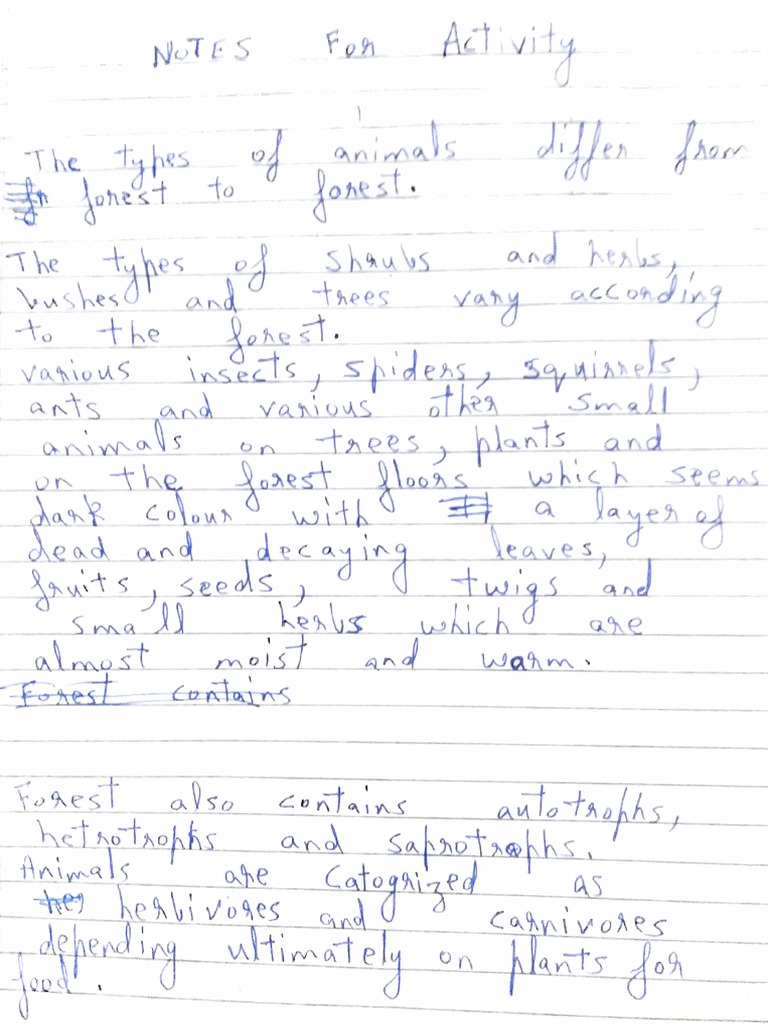 NOTES For Activity
The types of animals differ from
forest to forest.
The types of shrubs and herbs,
bushes and trees vary according
to the forest.
various insects, spiders, squirrels,
ants and various other small
animals on trees, plants and
on the forest floors which seems
dark colour with a layer of
dead and decaying leaves,
fruits, seeds, twigs and
small herbs which are
almost moist and warm.
Forest contains
Forest also contains autotrophs,
hetrotrophs and saprotrophs.
Animals are Catogrized as
herbivores and carnivores
depending ultimately on plants for
food.